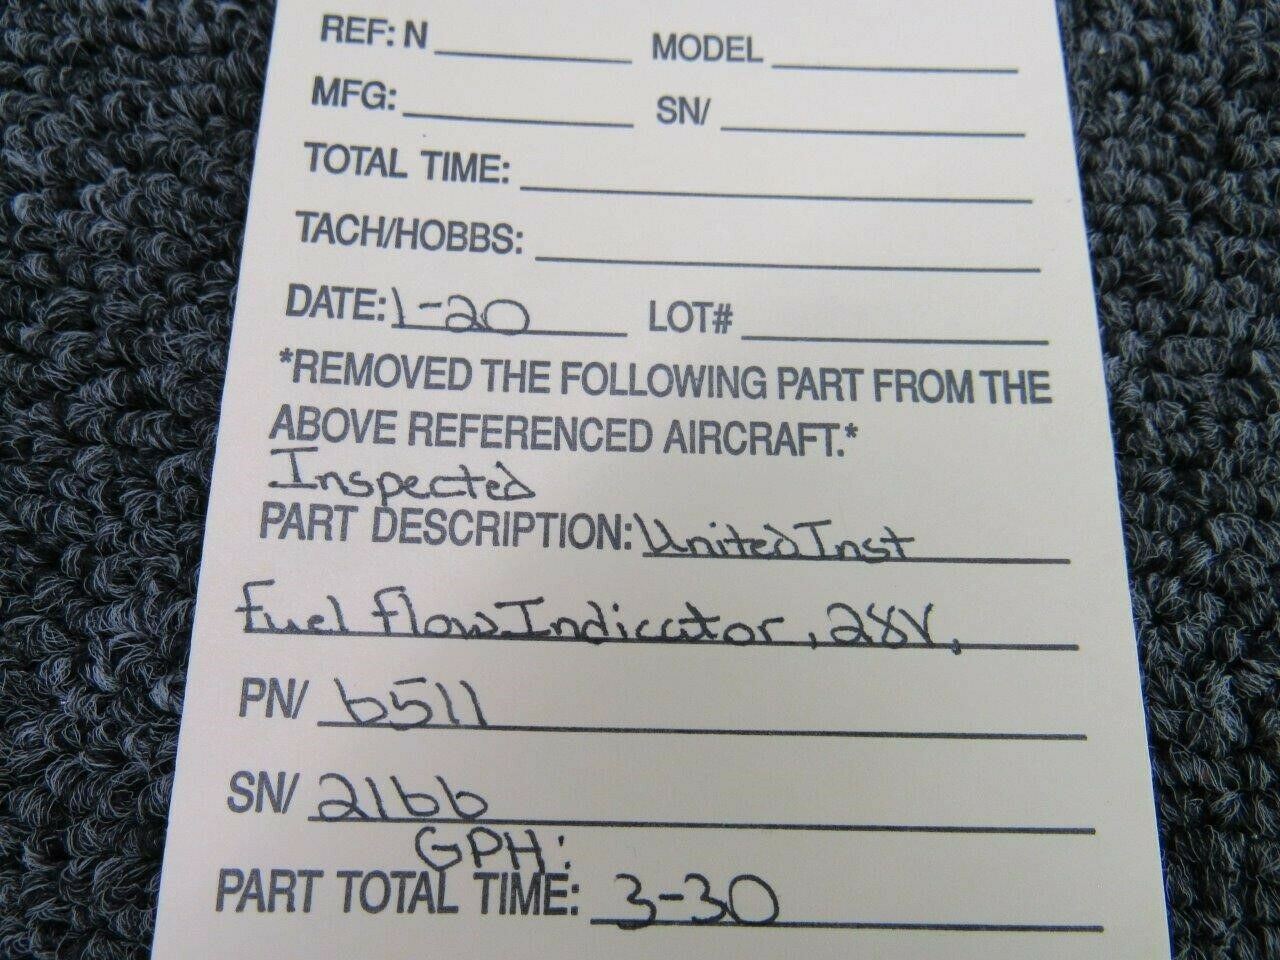 REF: N MODEL
MFG: SN/
TOTAL TIME:
TACH/HOBBS:
DATE: 1-20 LOT#
*REMOVED THE FOLLOWING PART FROM THE
ABOVE REFERENCED AIRCRAFT.*
Inspected
PART DESCRIPTION: United Inst
Fuel Flow Indicator, 28V,
PN/ 6511
SN/ 2166
GPH:
PART TOTAL TIME: 3-30